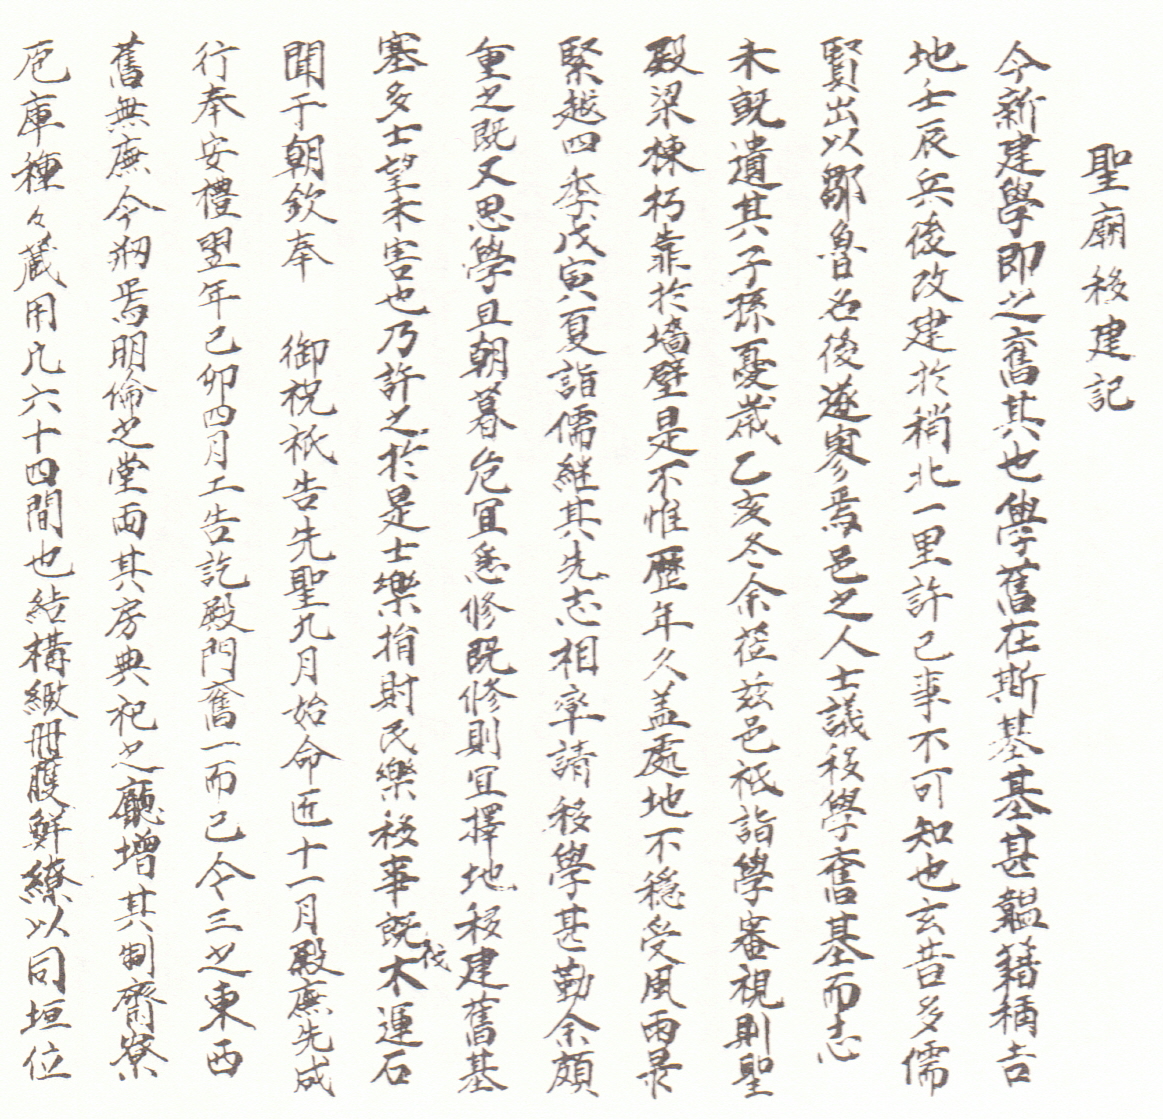 聖廟移建記
今新建學即之舊其也學舊在斯基基甚韞藉稱吉
地壬辰兵後改建於稍北一里許已事不可知也玄昔多儒
賢出以鄒魯名後遂寥焉邑之人士議移學舊基而志
未既遺其子孫憂歲乙亥冬余莅玆邑祗詣學審視則聖
殿梁棟朽靠於墻壁是不惟歷年久盖處地不穩受風雨暴
緊越四季戊寅夏詣儒継其先志相率請移學甚勤余頗
重之既又思學且朝暮危宜悉修既修則宜擇地移建舊基
塞多士望未害也乃許之於是士樂捐財民樂移事既伐木運石
聞于朝欽奉 御祝祇告先聖九月始命匠十一月殿廡先成
行奉安禮翌年己卯四月工告訖殿門舊一而已今三之東西
舊無廡今刱焉明倫之堂兩其房典祀之廳增其制齋寮
庖庫種々藏用凡六十四間也結構緻雘鮮繚以同垣位